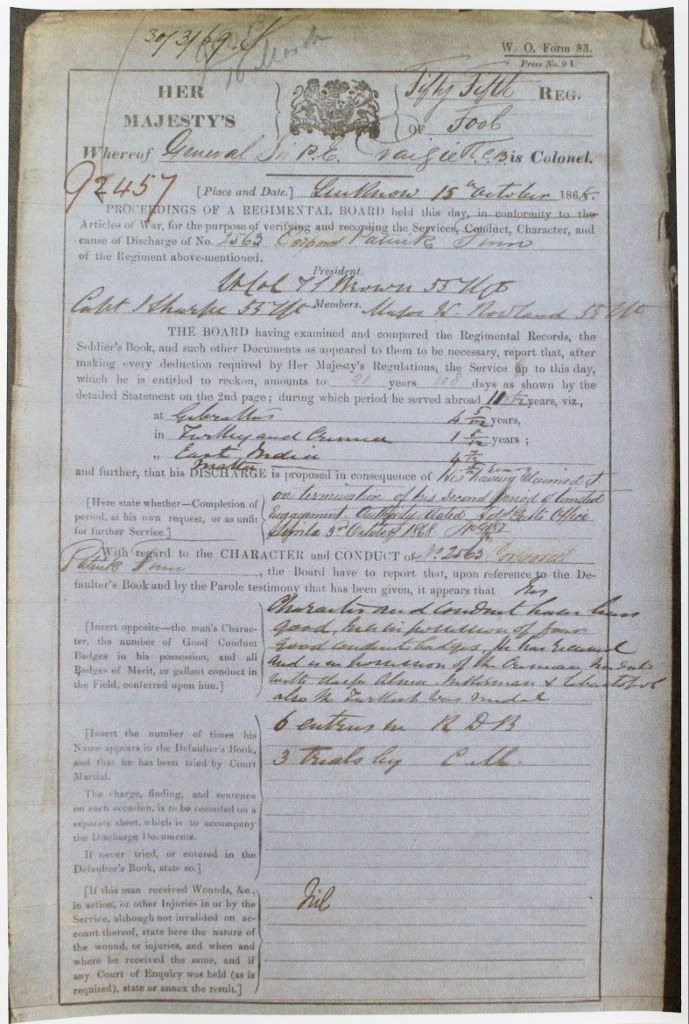 30/3/69
16 March
W. O. Form 83.
Press No. 91.
HER
MAJESTY'S
Fifty Fifth REG.
OF Foot
Whereof General Sir P. E. is Colonel.
92457
[Place and Date.] Lucknow 15th October 1868.
PROCEEDINGS OF A REGIMENTAL BOARD held this day, in conformity to the
Articles of War, for the purpose of verifying and recording the Services, Conduct, Character, and
cause of Discharge of No. 2563 Corporal Patrick
of the Regiment above-mentioned.
President.
Lt Col Brown 55 Rgt
Capt Sharpe 55 Rgt Members. Major W. Rowland 55 Rgt
THE BOARD having examined and compared the Regimental Records, the
Soldier's Book, and such other Documents as appeared to them to be necessary, report that, after
making every deduction required by Her Majesty's Regulations, the Service up to this day,
which he is entitled to reckon, amounts to 21 years days as shown by the
detailed Statement on the 2nd page; during which period he served abroad years, viz.,
at Gibraltar 4 5/12 years,
in Turkey and Crimea 1 years;
„ East India 4
and further, that his DISCHARGE is proposed in consequence of His having claimed it
on termination of his second period of limited
[Here state whether—Completion of
period, at his own request, or as unfit
for further Service.]
Engagement. Authority dated Office
3d October 1868
With regard to the CHARACTER and CONDUCT of No. 2563 Corporal
Patrick , the Board have to report that, upon reference to the De-
faulter's Book and by the Parole testimony that has been given, it appears that his
Character and conduct have been
good, he is in possession of four
good conduct badges. He has received
and is in possession of the Crimean medal
with clasps Alma, Inkerman & Sebastopol
also the Turkish War medal
[Insert opposite—the man's Charac-
ter, the number of Good Conduct
Badges in his possession, and all
Badges of Merit, or gallant conduct in
the Field, conferred upon him.]
6 entries in R D B
3 trials by C. M.
[Insert the number of times his
Name appears in the Defaulter's Book,
and that he has been tried by Court
Martial.
The charge, finding, and sentence
on each occasion, is to be recorded on a
separate sheet, which is to accompany
the Discharge Documents.
If never tried, or entered in the
Defaulter's Book, state so.]
[If this man received Wounds, &c.,
in action, or other Injuries in or by the
Service, although not invalided on ac-
count thereof, state here the nature of
the wound, or injuries, and when and
where he received the same, and if
any Court of Enquiry was held (as is
required), state or annex the result.]
Nil